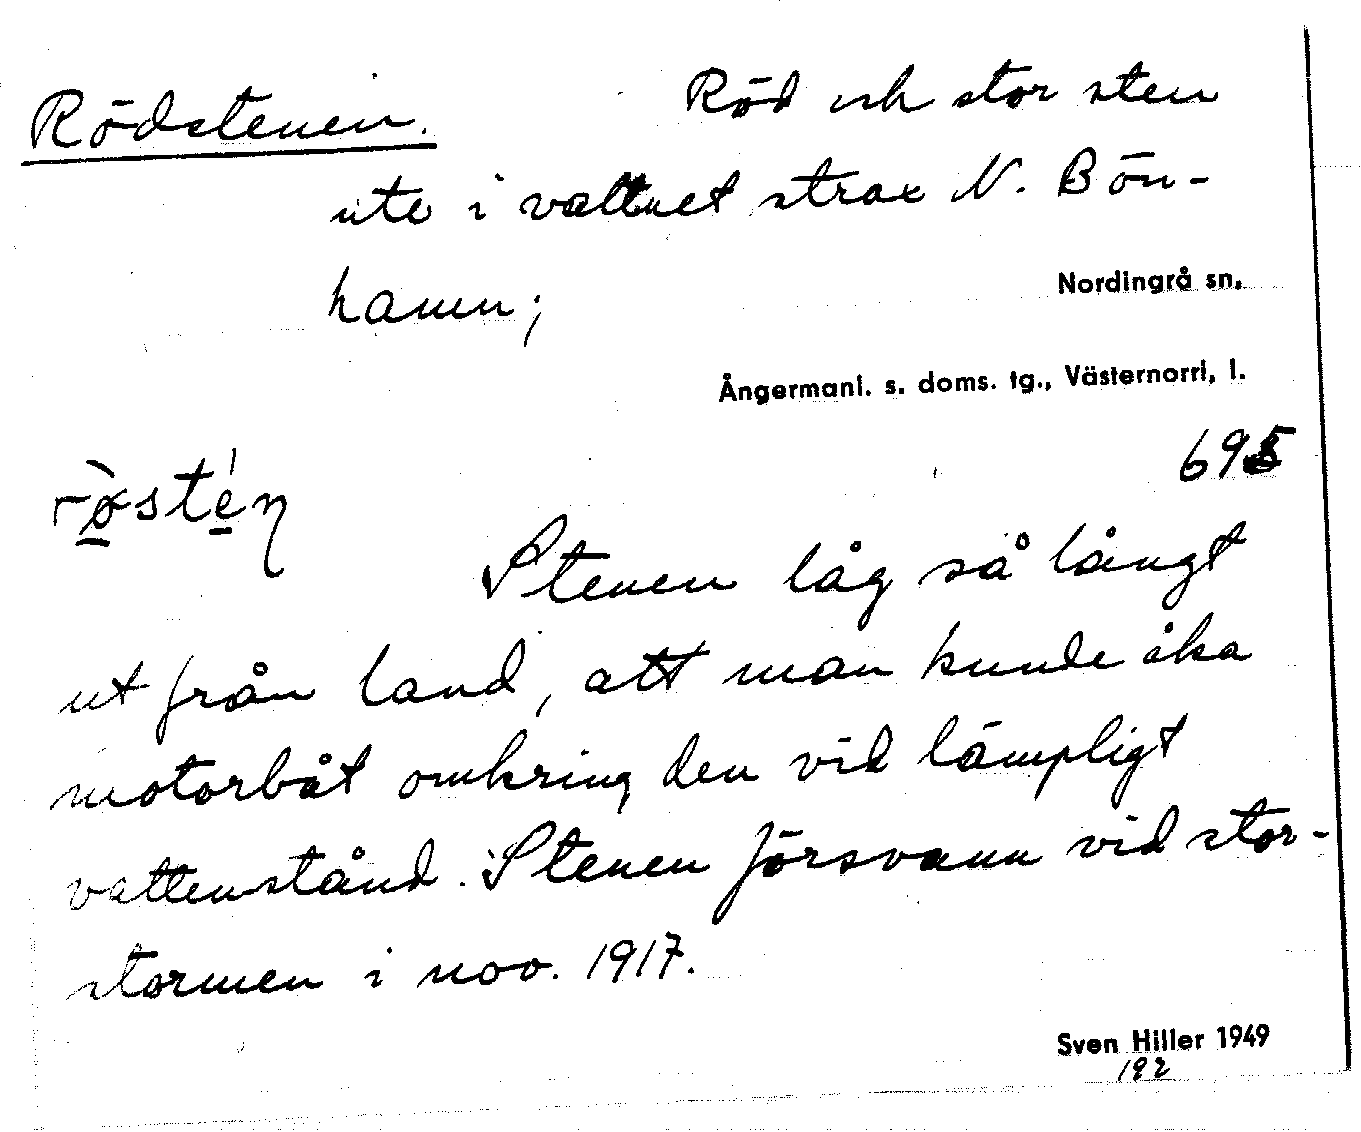 Rödstenen. Röd och stor sten
ute i vattnet strax N. Bön-
hamn;
Nordingrå sn.
Ångermanl. s. doms. tg., Västernorrl. l.
695
Stenen låg så långt
ut från land, att man kunde åka
motorbåt omkring den vid lämpligt
vattenstånd. Stenen försvann vid stor-
stormen i nov. 1917.
Sven Hiller 1949
192